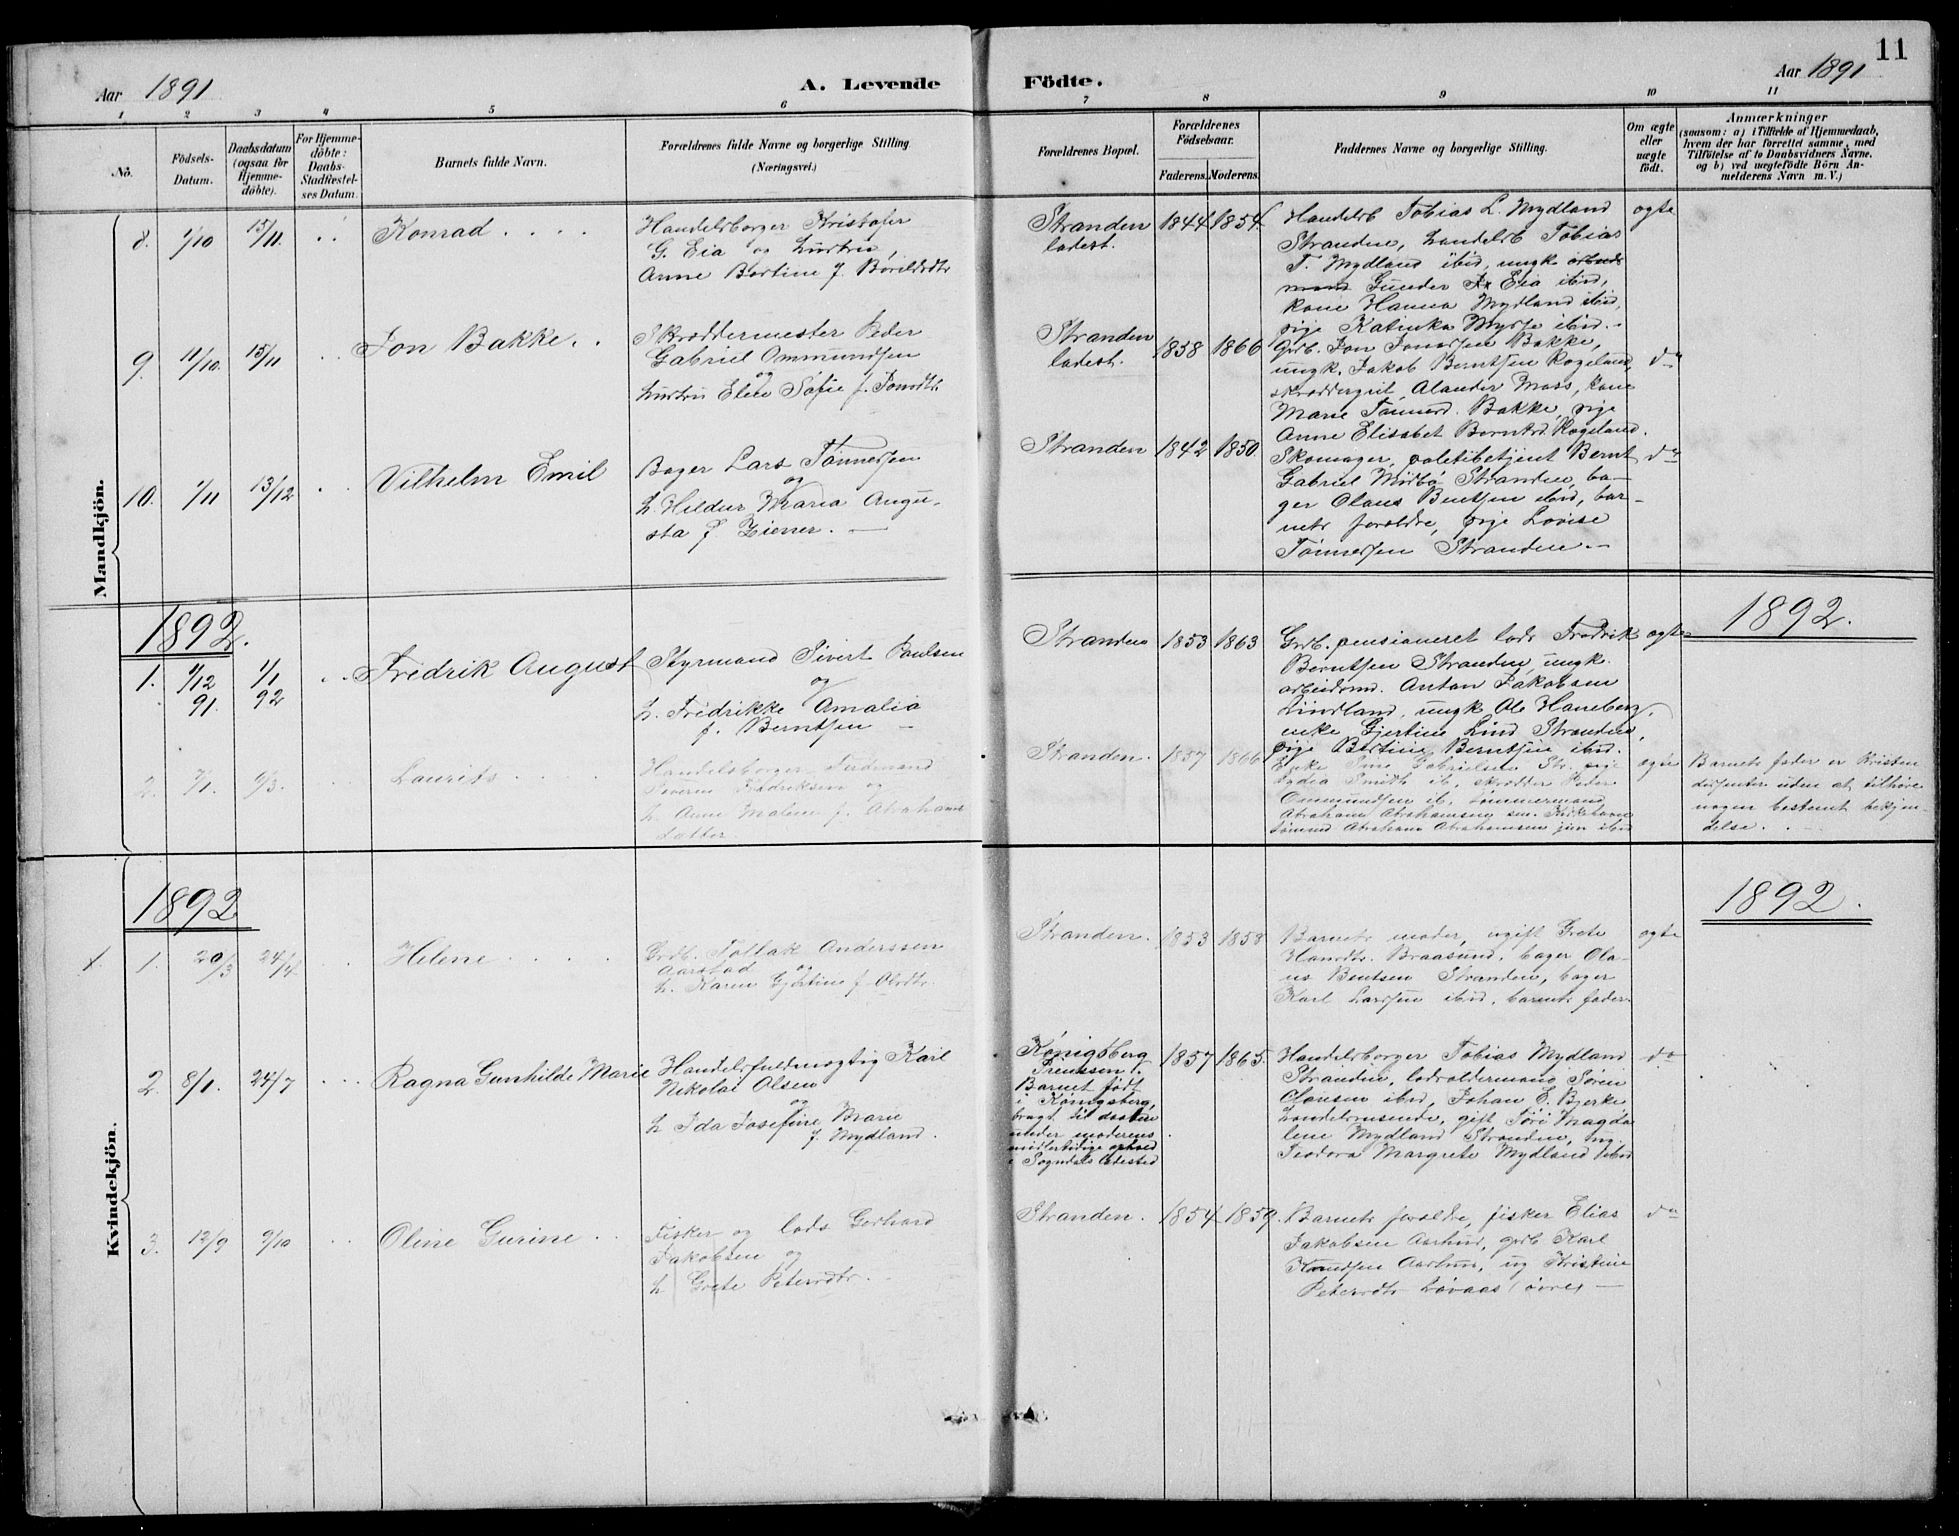 11
Aar 1891
A. Levende Födte.
Aar 1891
1 2 3 4 5 6 7 8 9 10 11
No.
Födsels-
Datum.
Daabsdatum
(ogsaa for
Hjemme-
döbte).
For Hjemme-
döbte:
Daabs-
Stadfæstel-
ses Datum.
Barnets fulde Navn.
Forældrenes fulde Navne og borgerlige Stilling
(Næringsvei.)
Forældrenes Bopæl.
Forældrenes
Födselsaar.
Faderens. Moderens.
Faddernes Navne og borgerlige Stilling.
Om ægte
eller
uægte
födt.
Anmærkninger
(saasom: a) i Tilfælde af Hjemmedaab,
hvem der har forrettet samme, med
Tilföielse af to Daabsvidners Navne,
og b) ved uægtefödte Börn An-
melderens Navn m. V.)
Mandkjön.
8. 1/10 15/11. Konrad
Handelsborger Kristofer
G. Eia og hustru,
Anne Bertine f.
Stranden
ladest.
1844 1854
Handelsb Tobias L. Mydland
Stranden, handelsb Tobias
T. Mydland ibid, ungk
Gunder Eia ibid,
kone Hanna Mydland ibid,
pige Katinka ibid.
ogte
9. 11/10. 15/11 Jon Bakke.
Skræddermester Peder
Gabriel Ommundsen
og
hustru Elen Sofie f. Jonsdtr
Stranden
ladest.
1858 1866
Grdb. Jon Jonassen Bakke,
ungk. Jakob Berntsen Rogeland,
Moss, kone
Marie Bakke, pige
Anne Elisabet Berntsd. Rogeland.
do
10. 1/11 13/12 Vilhelm Emil
Bager Lars Tønnessen
og
h. Hildur Maria Augu-
sta f. Ziener.
Stranden 1842 1850
Skomager, politibetjent Bernt
Gabriel Stranden, ba-
ger Olaus Bentsen ibid, bar-
nets foreldre, pige Lovise
Tønnessen Stranden
do
1892.
1892.
1. 1/12 91. 1/1 92
Fredrik August
Styrmand Sivert Paulsen
og
h. Fredrikke Amalia
f. Berntsen
Stranden 1853 1863
Grdb. pensioneret lods Fredrik
Berntsen Stranden, ungk.
arbeidsmd. Anton Jakobsen
Lindland, ungk Ole Haneberg,
enke Gjertine Lind Stranden,
pige Bertine Berntsen ibid.
ogte
2. 7/1. 6/3. Laurits
Handelsborger Ferdinand
Severin Fredriksen og
h. Anne Malene f. Abrahams-
datter
Stranden. 1857 1866
Enke Gabrielsen Str. pige
Smith ib, skrædder Peder
Ommundsen ib. tømmermand
Abraham Abrahamsen sen.
Abraham Abrahamsen jun ibid
ogte
Barnets fader er kristen
dissenter uden at tilhøre
nogen bestemt bekjen-
delse.
Kvindekjön.
1892
1892.
1. 20/3 24/4 Helene
Grdb. Tollak Anderssen
Aarstad og
h. Karen Gjertine f. Olsdtr.
Stranden. 1853 1858
Barnets moder, ugift Grete
Hansdtr. Braasund, bager Ola-
us Bentsen Stranden, bager
Karl Larssen ibid, barnets fader.
ogte
2. 8/1. 24/7 Ragna Gunhilde Marie
Handelsfuldmægtig Karl
Nikolai Olsen
og
h Ida Josefine Marie
f. Mydland.
Königsberg
Preussen.
Barnet født
i Königsberg,
bragt til daaben
under moderens
midlertidige ophold
i Sogndals ladested
1857 1865.
Handelsborger Tobias Mydland
Stranden, lodsoldermand Søren
Clausen ibid, Johan E. Bjerke
handelsreisende, gift Magda
lene Mydland Stranden, ug.
Teodora Margrete Mydland ibid
do
3. 12/9 9/10 Oline Gurine
Fisker og lods Gerhard
Jakobsen og
h Grete Petersdtr.
Stranden. 1854 1859.
Barnets foreldre, fisker Elias
Jakobsen Aarhus, grdb Karl
Knudsen Aarhus, ug Kristine
Petersdtr Løvaas (øvre)
do